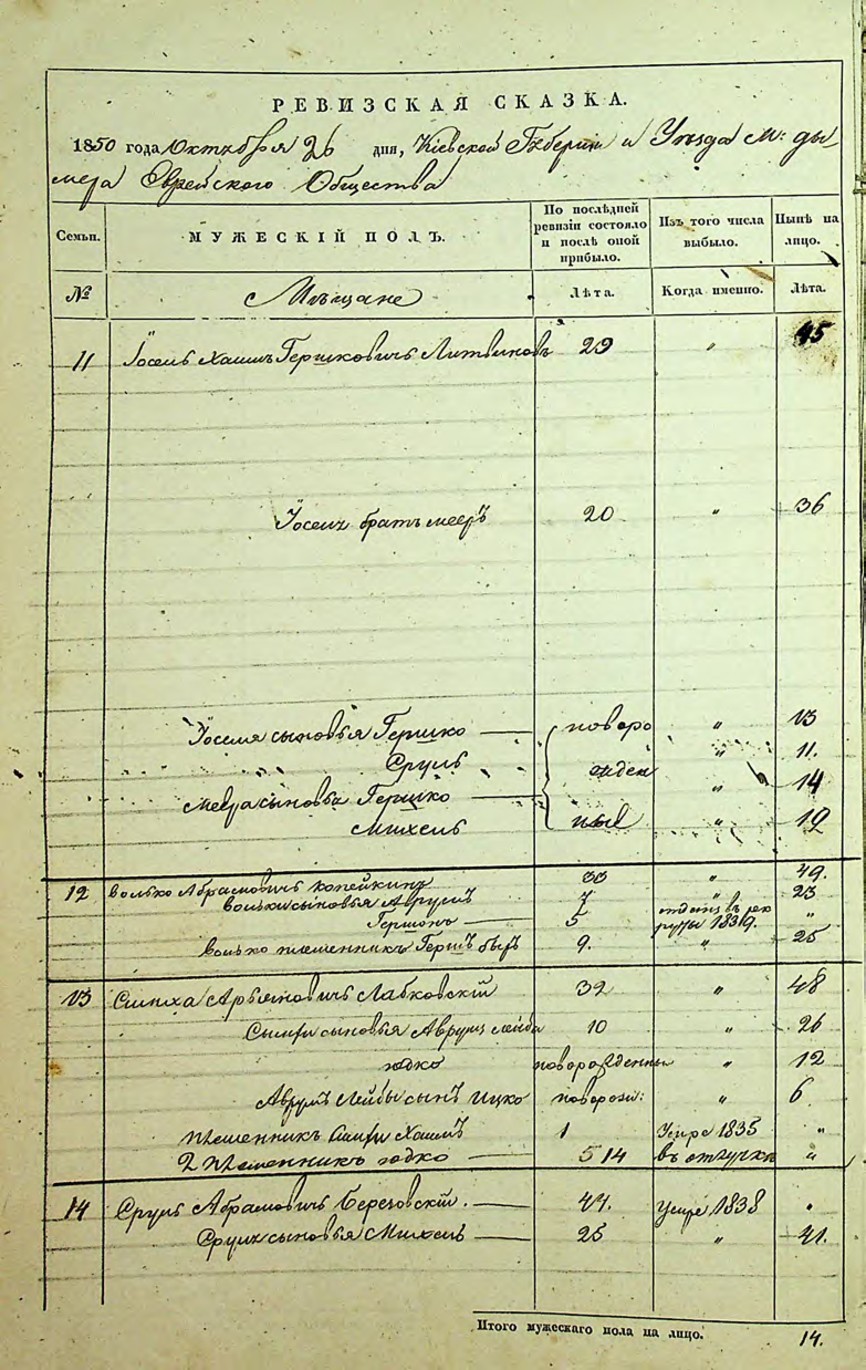 РЕВИЗСКАЯ СКАЗКА.
1850 года Октября 26 дня, Кіевской Губерніи и Уѣзда м: Ды
мера Еврейского Общества
Семьи. МУЖЕСКІЙ ПОЛЪ. По послѣдней ревизіи состояло и послѣ оной прибыло. Изъ того числа выбыло. Нынѣ на лицо.
№ Мѣщане Лѣта. Когда именно. Лѣта.
11 Іосель Хаимъ Гершковичъ Литвиновъ 29 " 45
Іосель братъ Мееръ 20 " 36
Іоселя сыновья Гершко новоро " 13
Сруль " 11.
жден " 14
Меера сыновья Гершко
Михель ные " 12
12 Волько Абрамовичъ Копейкинъ 33 " 49.
Вольки сыновья Аврумъ 7 " 23
Гершонъ 5 отданъ въ рек "
руты 1839.
Волько племенникъ Герш 9. " 25
13 Симха Арьямовичъ Лабковскій 32 " 48
Симхи сыновья Аврумъ Лейба 10 " 26
Юдко новорожденны " 12
Аврумъ Лейбы сынъ Ицко новорож: " 6
племенникъ Симхи Хаимъ 1 Умре 1835 "
2 племенникъ Юдко 5 14 въ отлучке "
14 Сруль Абрамовичъ Березовскій. 47. Умре 1838 "
Сруля сыновья Михель 25 " 41.
Итого мужескаго пола на лицо. 14.